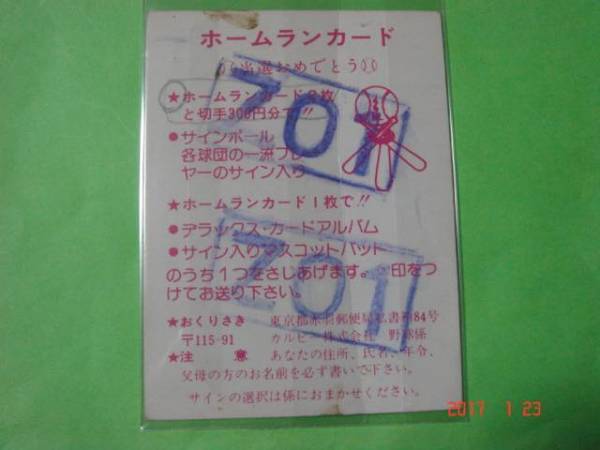 ホームランカード
当選おめでとう
★ホームランカード2枚
と切手300円分で!!
●サインボール
各球団の一流プレ
ヤーのサイン入り
★ホームランカード1枚で!!
●デラックス・カードアルバム
●サイン入りマスコットバット
のうち1つをさしあげます。 印をつ
けてお送り下さい。
★おくりさき 東京都赤羽郵便局私書箱84号
〒115-91 カルビー株式会社 野球係
★注意 あなたの住所、氏名、年令、
父母の方のお名前を必ず書いて下さい。
サインの選択は係におまかせください。
No1
No1
2017 1 23